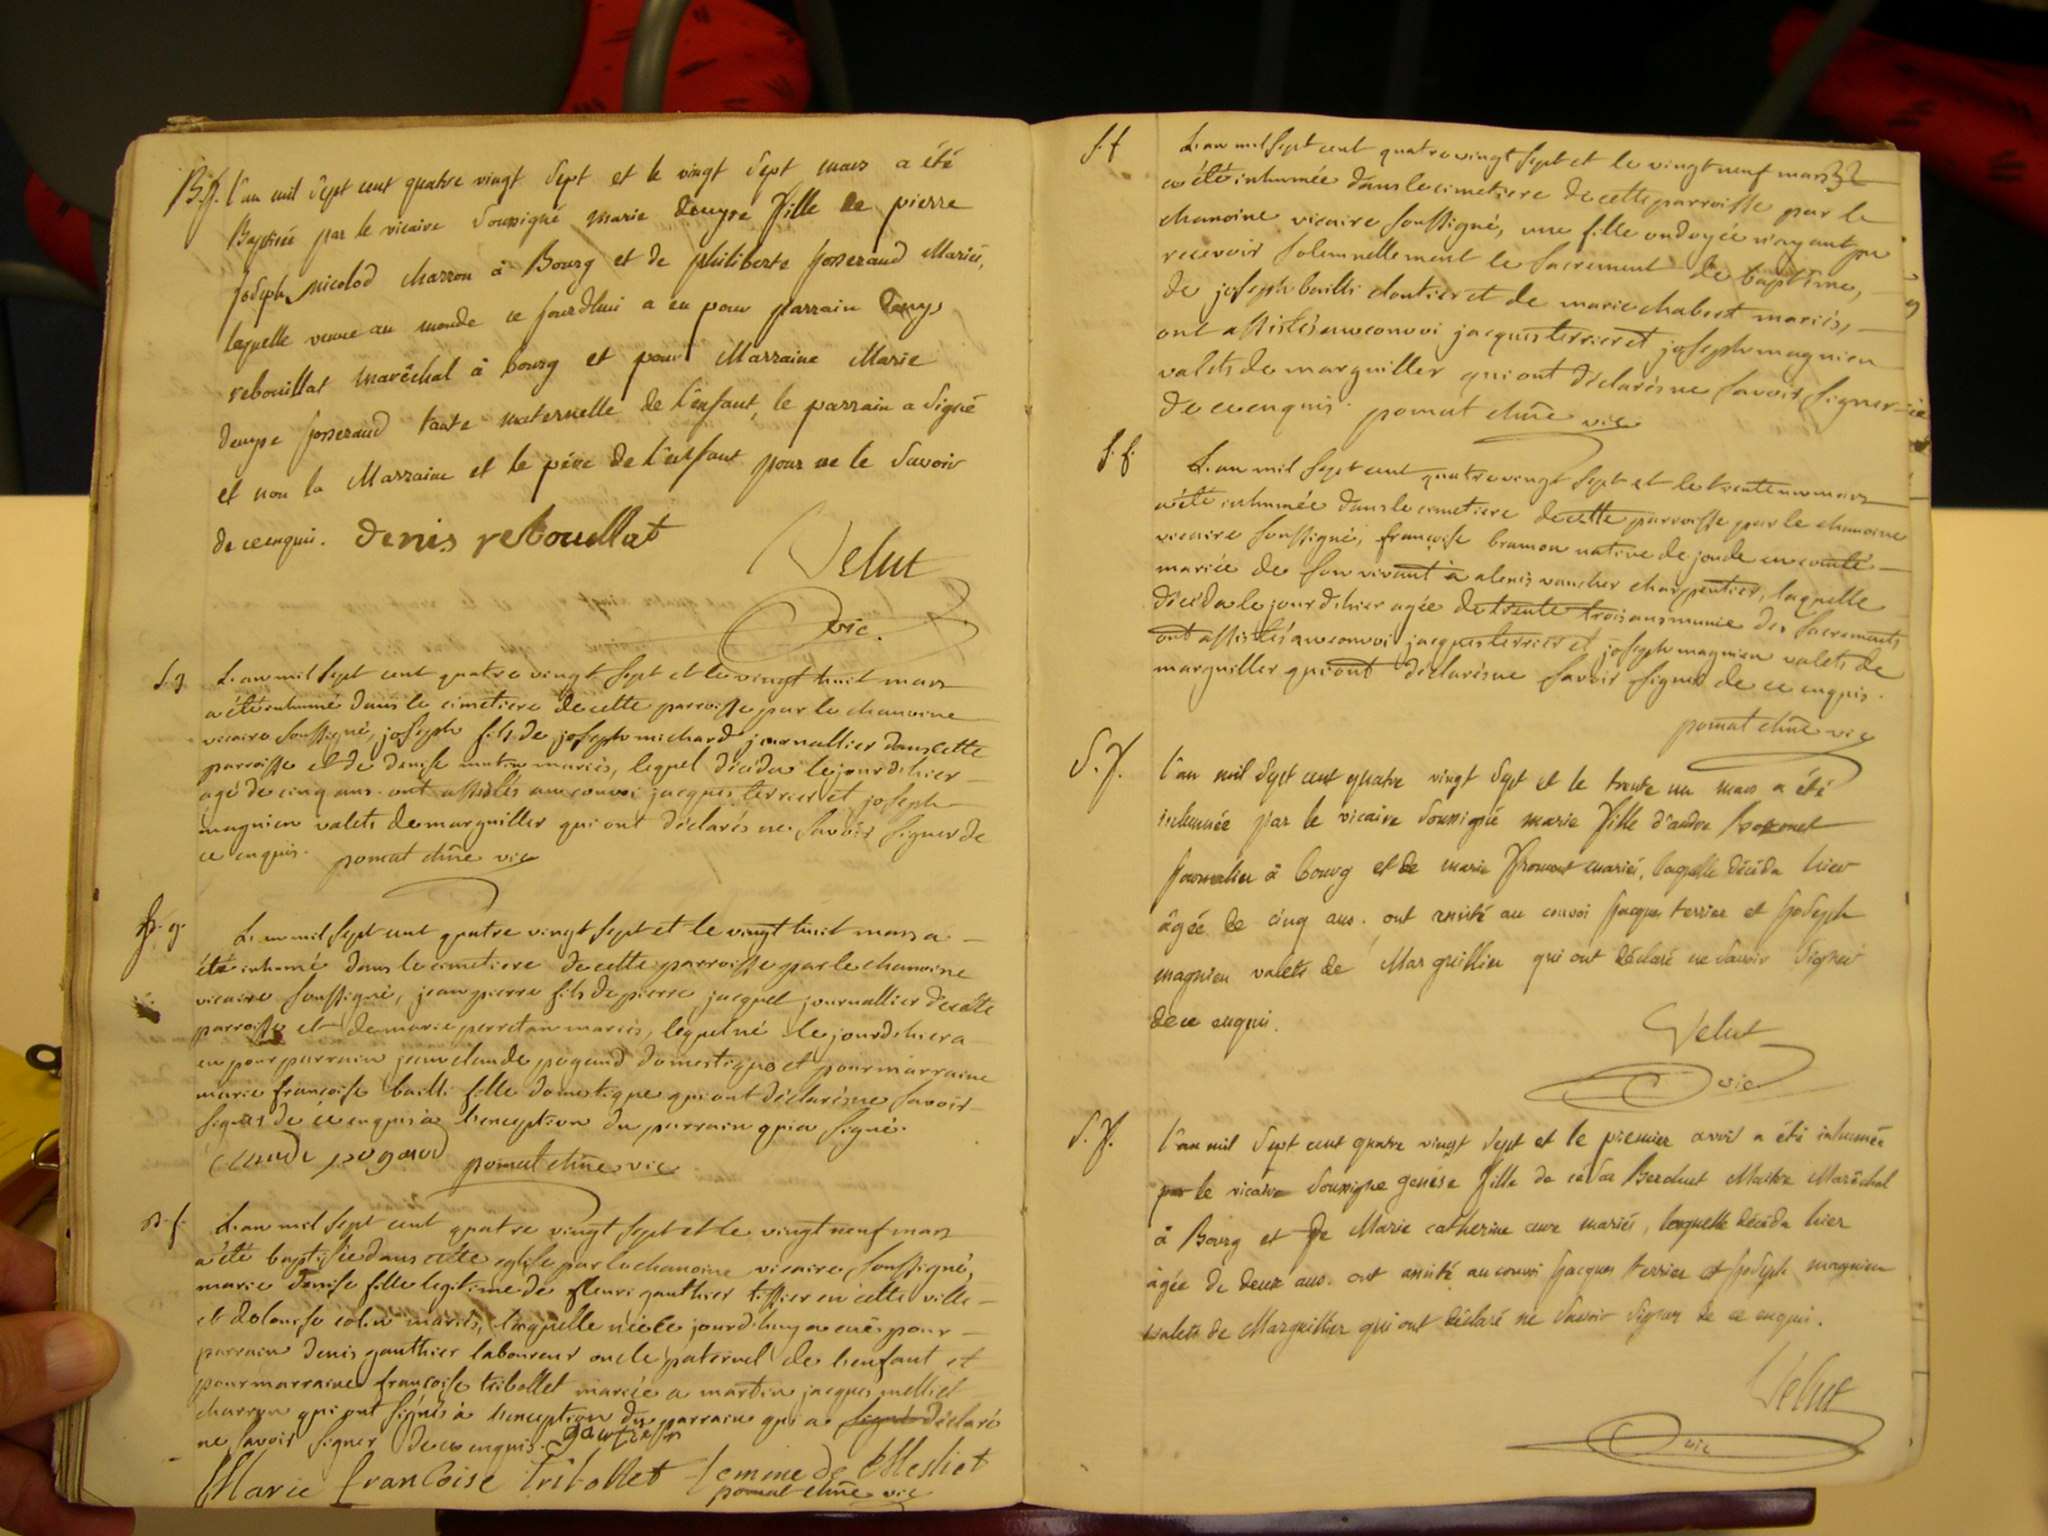 B.f. l'an mil sept cent quatre vingt sept et le vingt sept mars a été
Baptisée par le vicaire soussigné marie denyse fille de pierre
joseph nicolod charron à Bourg et de philiberte josserand Mariés,
laquelle venue au monde ce jourdhui a eu pour parrain denys
rebouillat maréchal à bourg et pour Marraine Marie
denyse josserand tante maternelle de l'enfant, le parrain a signé
et non la Marraine et le père de l'enfant pour ne le savoir
de ce enquis. denis rebouillat
Velut
vic.
S.g L'an mil sept cent quatre vingt sept et le vingt huit mars
a été inhumé dans le cimetiere de cette parroisse par le chanoine
vicaire soussigné, joseph fils de joseph michard journallier dans cette
parroisse et de denise mariés, lequel décéda le jour d'hier
agé de cinq ans. ont assistés au convoi jacques terrier et joseph
magnien valets de marguiller qui ont déclarés ne savoir signer de
ce enquis. pomat chne vic
L'an mil sept cent quatre vingt sept et le vingt huit mars a
été inhumé dans le cimetiere de cette parroisse par le chanoine
vicaire soussigné, jean pierre fils de pierre jacquet journallier de cette
parroisse et de marie perretan mariés, lequel né le jour d'hier a
eu pour parrain jean claude pogand domestique et pour marraine
marie françoise bailli fille domestique qui ont déclarés ne savoir
signer de ce enquis à l'exception du parrain qui a signé.
claude pogand pomat chne vic
B.f. L'an mil sept cent quatre vingt sept et le vingt neuf mars
a été baptisée dans cette eglise par le chanoine vicaire soussigné,
marie denise fille legitime de fleuri gauthier tissier en cette ville
et de louise colin mariés, laquelle née le jour d'huy a eue pour
parrain denis gauthier laboureur oncle paternel de l'enfant et
pour marraine françoise tribollet mariée a martin jacques melliet
charron qui ont signés à l'exception du parrain qui a signé déclaré
ne savoir signer de ce enquis.
Marie francoise tribollet femme de Melliet
pomat chne vic
S.f L'an mil sept cent quatre vingt sept et le vingt neuf mars 32
a été inhumée dans le cimetiere de cette parroisse par le
chanoine vicaire soussigné, une fille ondoyée n'ayant pu
recevoir solemnellement le sacrement de baptême,
de joseph bailli cloutier et de marie chabert mariés,
ont assistés au convoi jacques terrier et joseph magnien
valets de marguiller qui ont déclarés ne savoir signer
de ce enquis. pomat chne vic
S.f. L'an mil sept cent quatre vingt sept et le trente un mars
a été inhumée dans le cimetiere de cette parroisse par le chanoine
vicaire soussigné, françoise bramon native de joude en comté
mariée de son vivant à alexis vancher charpentier, laquelle
décéda le jour d'hier agée de trente trois ans munie des sacrements
ont assistés au convoi jacques terrier et joseph magnien valets de
marguiller qui ont déclarés ne savoir signer de ce enquis.
pomat chne vic
S.f. l'an mil sept cent quatre vingt sept et le trente un mars a été
inhumée par le vicaire soussigné marie fille d'andre
journalier à bourg et de marie fromont mariés, laquelle décéda hier
âgée de cinq ans. ont assisté au convoi jacques terrier et joseph
magnien valets de Marguillier qui ont déclaré ne savoir signer
de ce enquis.
Velut
vic
S.f. l'an mil sept cent quatre vingt sept et le premier avril a été inhumée
par le vicaire soussigné genese fille de césar Berchut Maitre Maréchal
à Bourg et de Marie catherine cure mariés, laquelle décéda hier
âgée de deux ans. ont assisté au convoi jacques terrier et joseph magnien
valets de Marguillier qui ont déclaré ne savoir signer de ce enquis.
Velut
vic